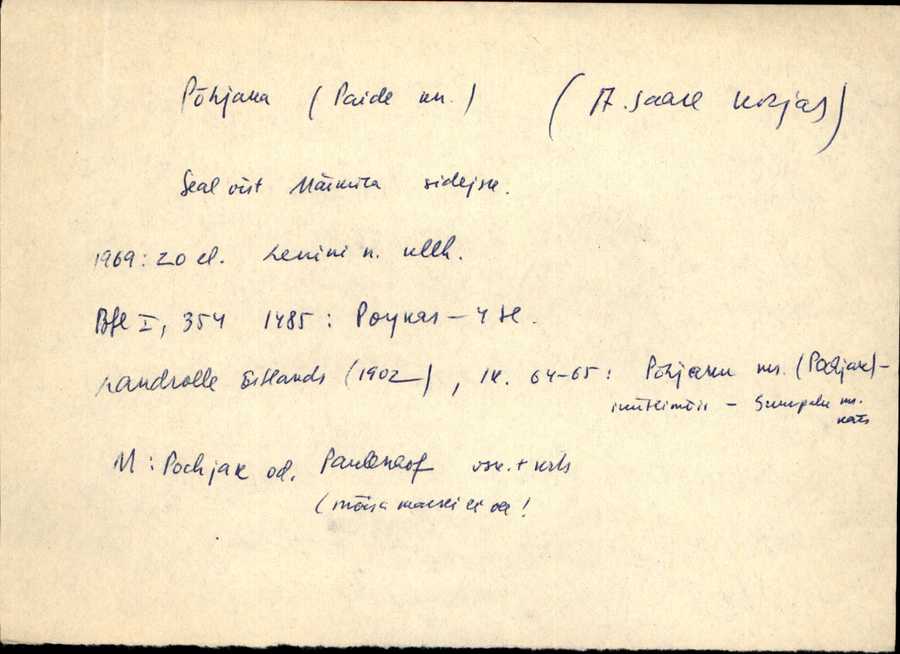 Põhjaka (Paide kn.) (A. Saare kirjas)
Seal vist Mäeküla sidejsk.
1969: 20 el. Lenini n. kllk.
Bfl I, 354 1485: Poykas – 4 te.
Landrolle Estlands (1902), lk. 64–65: Põhjaka ms. (Pochjak) –
rüütlimõis –
M: Pochjak od. Paulenhof
(mõisa märki ei ole!